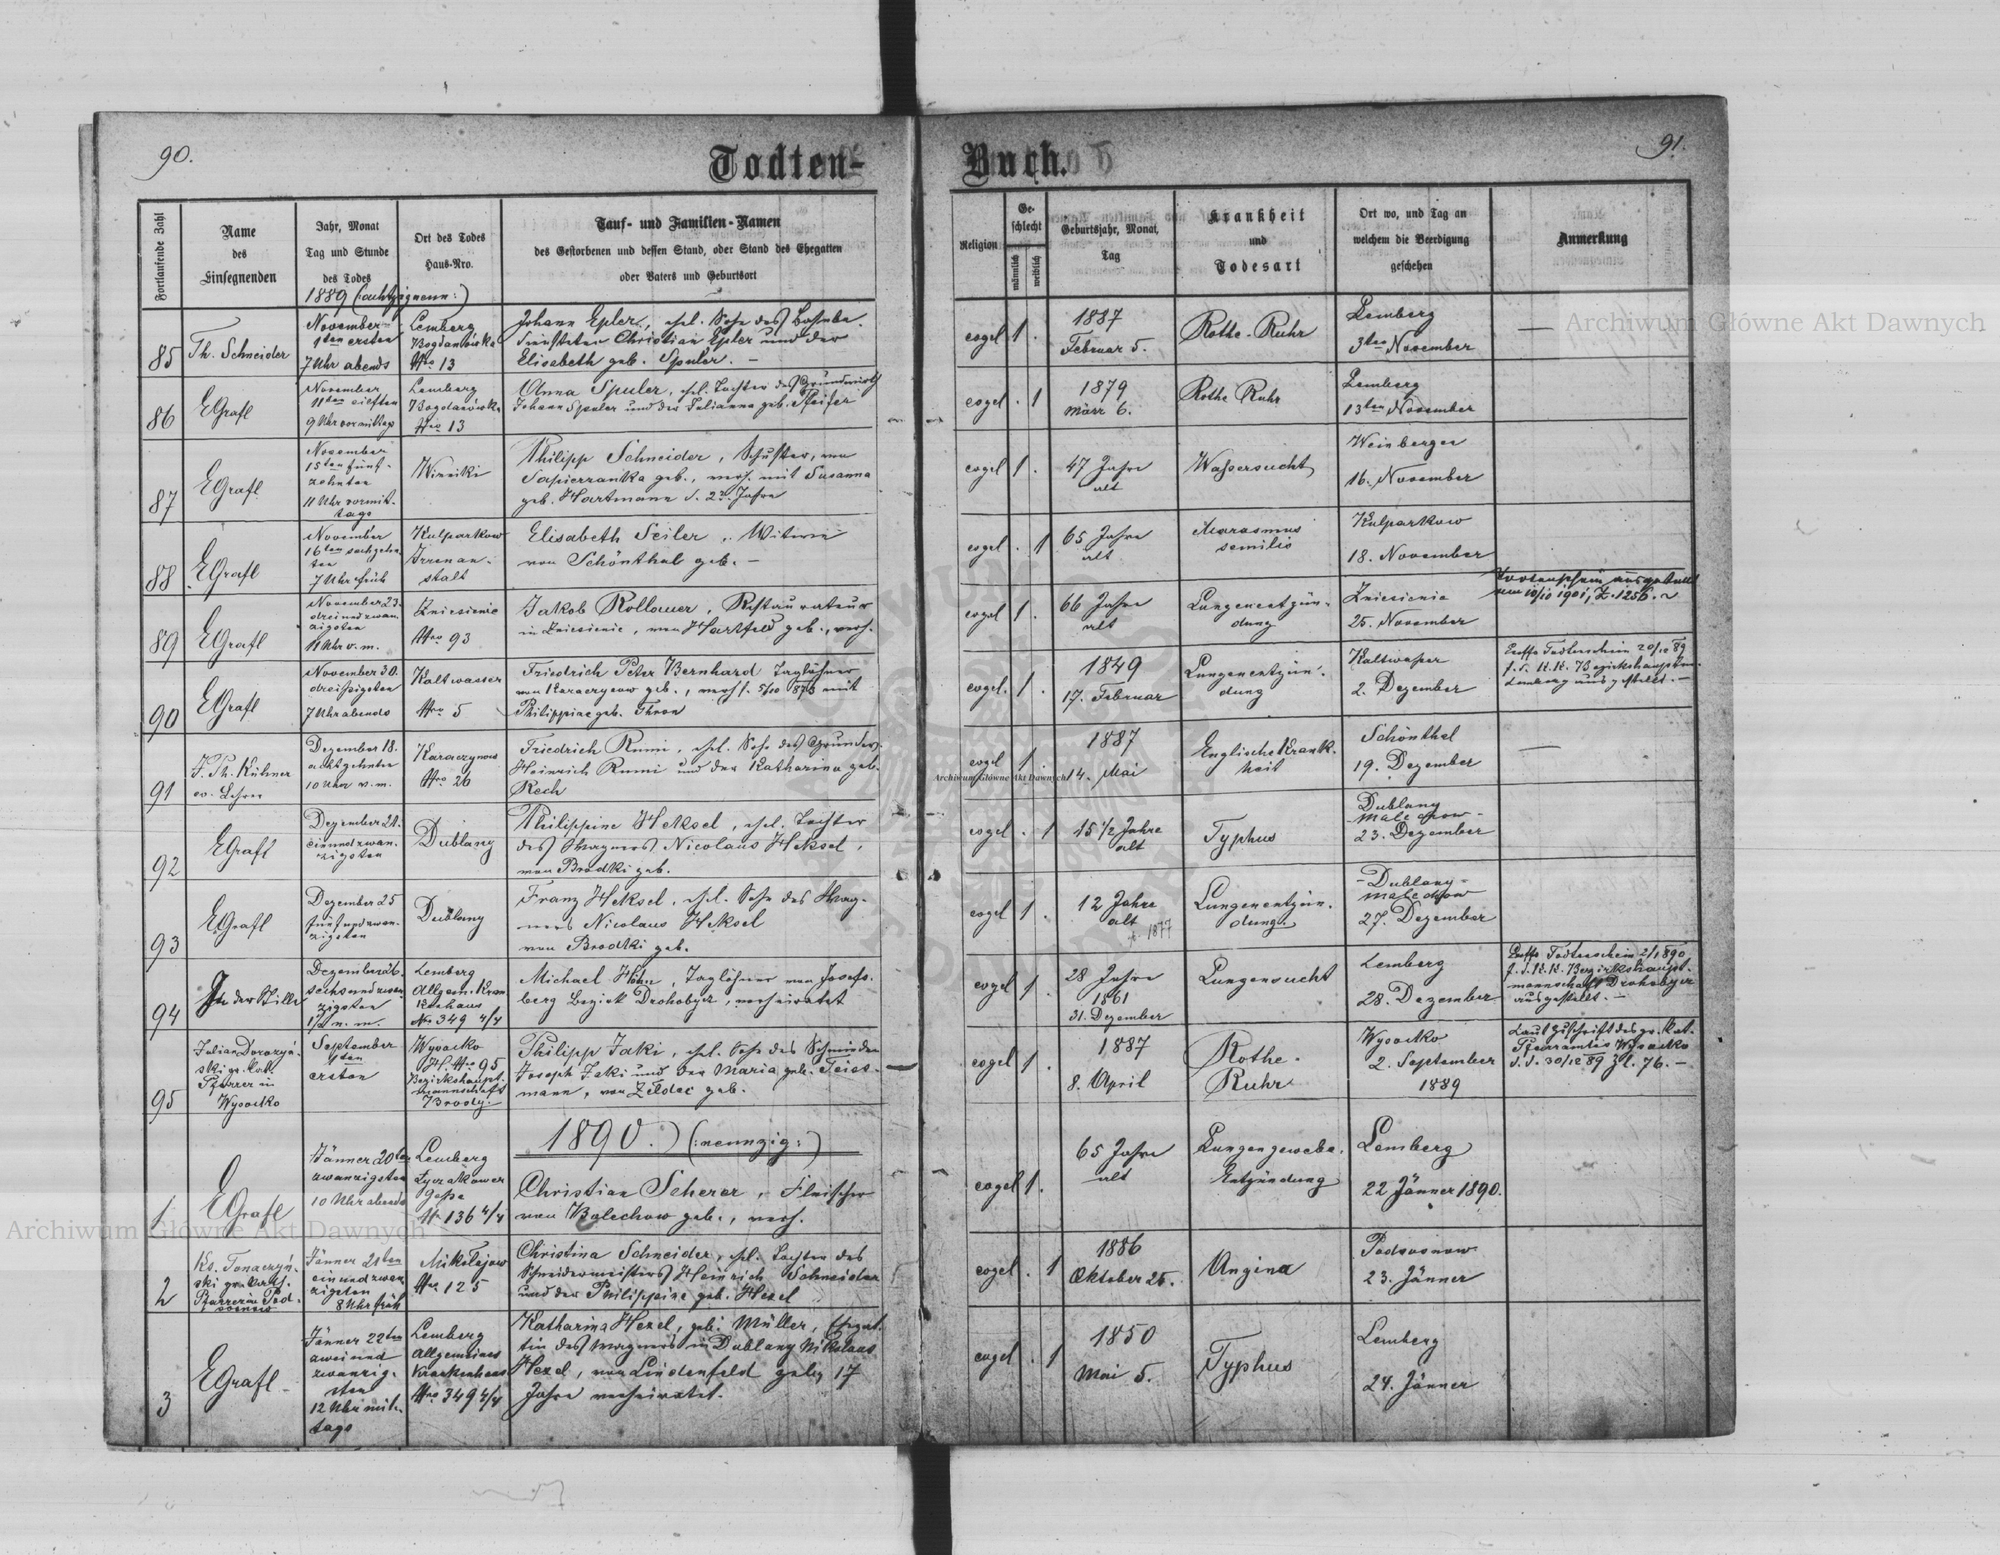 90.
Todten-
Buch.
91.
Fortlaufende Zahl
Name
des
Einsegnenden
Jahr, Monat
Tag und Stunde
des Todes
Ort des Todes
Haus-Nro.
Tauf- und Familien-Namen
des Gestorbenen und dessen Stand, oder Stand des Ehegatten
oder Vaters und Geburtsort
Religion
Geschlecht
männlich
weiblich
Geburtsjahr, Monat,
Tag
Krankheit
und
Todesart
Ort wo, und Tag an
welchem die Beerdigung
geschehen
Anmerkung
1889 (:achtzigneun:)
85
Th. Schneider
November
1ten ersten
7 Uhr abends
Lemberg
Bogdanówka
Nro 13
Johann Epler, ehel. Sohn des Bahnbe-
diensteten Christian Epler und der
Elisabeth geb. Spuler. —
evgel 1.
1887
Februar 5.
Rothe-Ruhr
Lemberg
3ten November
—
86
EGrafl
November
11ten eilften
9 Uhr vormittags
Lemberg
Bogdanówka
Nro 13
Anna Spuler, ehel. Tochter des Grundwirth
Johann Spuler und der Julianna geb. Pfeifer
evgel . 1
1879
März 6.
Rothe Ruhr
Lemberg
13ten November
87
EGrafl
November
15ten fünf-
zehnten
11 Uhr vormit-
tags
Winniki
Philipp Schneider, Schuster, von
Sapieżanka geb., verh. mit Susanna
geb. Hartmann d. 22. Jahre
evgel 1.
47 Jahre
alt
Wassersucht
Weinbergen
16. November
88
EGrafl
November
16ten sechzehn-
ten
7 Uhr früh
Kulparkow
Irrenan-
stalt
Elisabeth Seiler, Witwe
von Schönthal geb. —
evgel . 1
65 Jahre
alt
Marasmus
senilis
Kulparkow
18. November
89
EGrafl
November 23.
dreiundzwan-
zigsten
11 Uhr v. m.
Zniesienie
Nro 93
Jakob Kollauer, Restaurateur
in Zniesienie, von Hartfeld geb., verh.
evgel 1.
66 Jahre
alt
Lungenentzün-
dung
Zniesienie
25. November
Todtenschein ausgestellt
am 10/10 1901, Z. 1256.
90
EGrafl
November 30.
dreißigsten
7 Uhr abends
Kaltwasser
Nro 5
Friedrich Peter Bernhard Taglöhner
von Karaczynow geb., verh. 5/10 1876 mit
Philippine geb. Thron
evgel. 1.
1849
17. Februar
Lungenentzün-
dung
Kaltwasser
2. Dezember
Exoffo Todtenschein 20/12 89
f. d. K.K. Bezirkshauptm.
Lemberg ausgestellt. —
91
J. Th. Kühner
ev. Lehrer
Dezember 18.
achtzehnten
10 Uhr v. m.
Karaczynow
Nro 26
Friedrich Rumi, ehel. Sohn des Grundw.
Heinrich Rumi und der Katharina geb.
Rech
evgel 1
1887
14. Mai
Englische Krank-
heit
Schönthal
19. Dezember
—
92
EGrafl
Dezember 21.
einundzwan-
zigsten
Dublany
Philippine Heksel, ehel. Tochter
des Wagners Nicolaus Heksel,
von Brodki geb.
evgel . 1
15 1/2 Jahre
alt
Typhus
Dublany
Malechow-
23. Dezember
93
EGrafl
Dezember 25
fünfundzwan-
zigsten
Dublany
Franz Heksel, ehel. Sohn des Wag-
ners Nicolaus Heksel
von Brodki geb.
evgel 1.
12 Jahre
alt
1877
Lungenentzün-
dung.
-Dublany-
Malechow
27. Dezember
94
In der Stille
Dezember 26.
sechsundzwan-
zigsten
1/2 n. m.
Lemberg
Allgem. Kran-
kenhaus
Nro 349 4/4
Michael Höhn, Taglöhner von Josefs-
berg Bezirk Drohobycz, verheiratet
evgel 1.
28 Jahre
1861
31. Dezember
Lungensucht
Lemberg
28. Dezember
Exoffo Todtenschein 2/1 890
f. d. K.K. Bezirkshaupt-
mannschaft Drohobycz
ausgestellt. —
95
Julian Dorożyń-
ski gr. kath.
Pfarrer in
Wysocko
September
1ten
ersten
Wysocko
H. Nro 95
Bezirkshaupt-
mannschaft
Brody.
Philipp Jaki, ehel. Sohn des Schmieden
Joseph Jaki und der Maria geb. Teiss-
mann, von Zeldec geb.
evgel 1.
1887
8. April
Rothe-
Ruhr
Wysocko
2. September
1889
Laut Zuschrift des gr. kat.
Pfarramtes Wysocko
d. d. 30/12 89 Zl. 76. —
1890. (:neunzig:)
1
EGrafl
Jänner 20ten
zwanzigsten
10 Uhr abends
Lemberg
Łyczakower
Gasse
N. 136 4/4
Christian Scherer, Fleischer
von Bolechow geb., verh.
evgel 1.
65 Jahre
alt
Lungengewebe-
Entzündung
Lemberg
22 Jänner 1890.
2
Ks. Tonaczyń-
ski gr. kath.
Pfarrer in Pod-
sosnow
Jänner 21ten
einundzwan-
zigsten
8 Uhr früh
Mikołajow
Nro 125
Christina Schneider, ehel. Tochter des
Schneidermeisters Heinrich Schneider
und der Philippine geb. Hexel
evgel . 1
1886
Oktober 25.
Angina
Podsosnow
23. Jänner
3
EGrafl
Jänner 22ten
zweiund
zwanzig-
sten
12 Uhr mit-
tags
Lemberg
Allgemeines
Krankenhaus
Nro 349 4/4
Katharina Hexel, geb. Müller, Ehegat-
tin des Wagners in Dublany Nikolaus
Hexel, von Lindenfeld geb., 17
Jahre verheiratet.
evgel . 1
1850
Mai 5.
Typhus
Lemberg
24. Jänner
Archiwum Główne Akt Dawnych
Archiwum Główne Akt Dawnych
Archiwum Główne Akt Dawnych